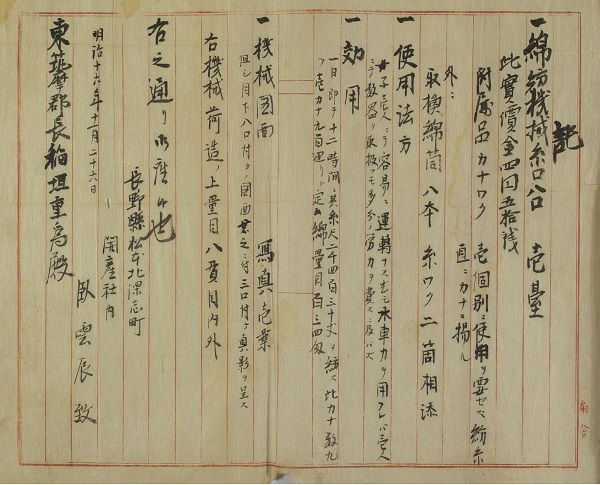 記
一綿紡機械糸口八口 壱臺
此實價金四円五拾銭
附属品 カナワク 壱個別ニ使用ヲ要セス紡糸
直ニカナニ揚ル
外ニ
取換綿筒 八本 糸ワク二箇相添
一使用法方
女子壱人ニテ容易ニ運轉ス尤モ水車力ヲ用フレバ壱人
ニテ数器ヲ取扱フモ多分ノ労力ヲ費スニ及バズ
一効用
一日即チ十二時間ニ其糸二千四百三十丈ヲ紡ス此カナ数九
ツ壱カナ九百廻リト定ム綿量目百三四匁
一機械図面 寫真壱葉
但シ目下八口付ケノ図面無之ニ付三口付ケ真影ヲ呈ス
右機械荷造ノ上量目八貫目内外
右之通リ御座候也
長野縣松本北深志町
開産社内
明治十六年十一月二十六日
臥雲辰致
東筑摩郡長稲垣重為殿